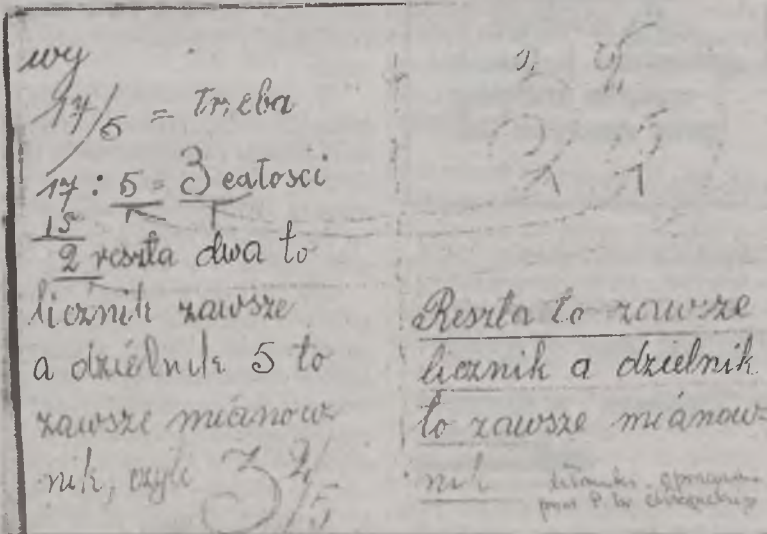 wy
17/5 = Treba
17 : 5 = 3 całości
15
2 reszta dwa to
licznik zawsze
a dzielnik 5 to
zawsze mianow
nik, czyli 3 2/5
Reszta to zawsze
licznik a dzielnik
to zawsze mianow
nik